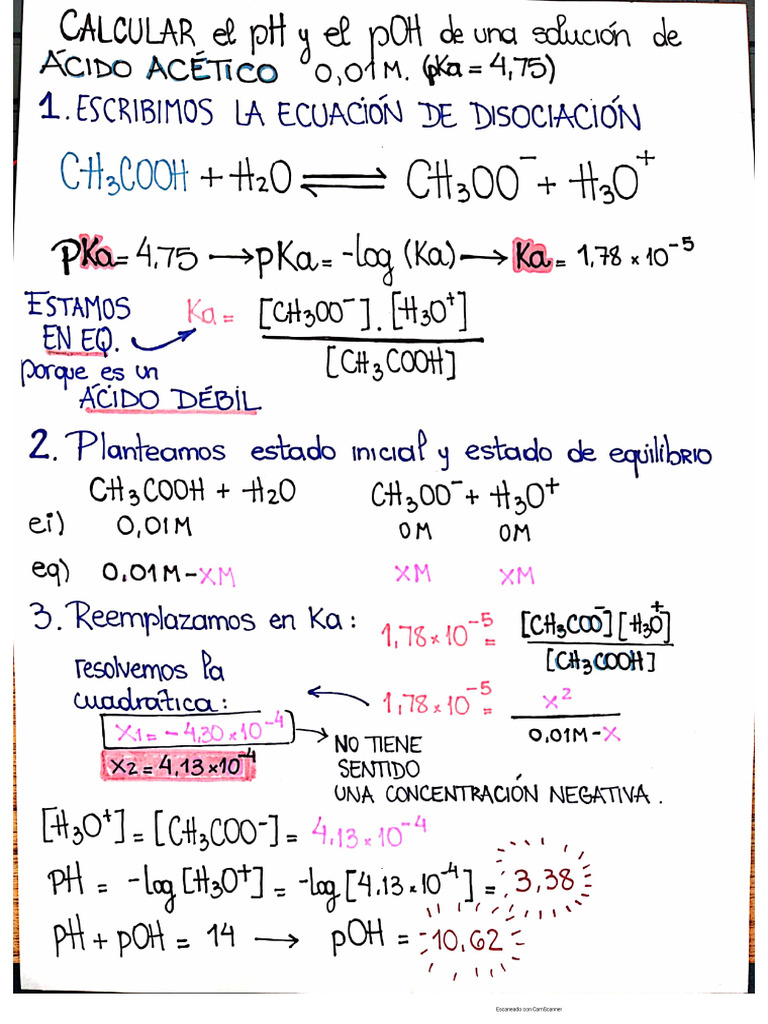 CALCULAR el pH y el pOH de una solución de
ÁCIDO ACÉTICO 0,01M. (pKa = 4,75)
1. ESCRIBIMOS LA ECUACIÓN DE DISOCIACIÓN
CH₃COOH + H₂O ⇌ CH₃OO⁻ + H₃O⁺
pKa = 4,75 → pKa = -log (Ka) → Ka = 1,78 × 10⁻⁵
ESTAMOS
EN EQ.
porque es un
ÁCIDO DÉBIL
Ka = [CH₃OO⁻] . [H₃O⁺]
[CH₃COOH]
2. Planteamos estado inicial y estado de equilibrio
CH₃COOH + H₂O CH₃OO⁻ + H₃O⁺
ei) 0,01M 0M 0M
eq) 0.01M-XM XM XM
3. Reemplazamos en Ka: 1,78 × 10⁻⁵ = [CH₃COO⁻] [H₃O⁺]
[CH₃COOH]
resolvemos la
cuadrática: ← 1,78 × 10⁻⁵ = X²
0,01M-X
X₁ = - 4,30 × 10⁻⁴ → NO TIENE
SENTIDO
UNA CONCENTRACIÓN NEGATIVA.
X₂ = 4,13 × 10⁻⁴
[H₃O⁺] = [CH₃COO⁻] = 4,13 × 10⁻⁴
pH = -log [H₃O⁺] = -log [4,13 × 10⁻⁴] = 3,38
pH + pOH = 14 → pOH = 10,62
Escaneado con CamScanner